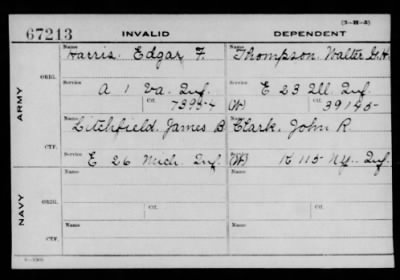 (3-M-3)
67213 INVALID DEPENDENT
Name Name
Harris, Edgar F. Thompson, Walter G.H.
ARMY
ORIG.
Service Service
A 1 Va. Inf. E 23 Ill. Inf.
Ctf. (W) Ctf.
39145-
Name Name
Litchfield, James B. Clark, John R.
CTF.
Service Service
E 26 Mich. Inf. (W) K 115 N.Y. Inf.
NAVY
Name Name
ORIG.
Ctf. Ctf.
Name Name
CTF.